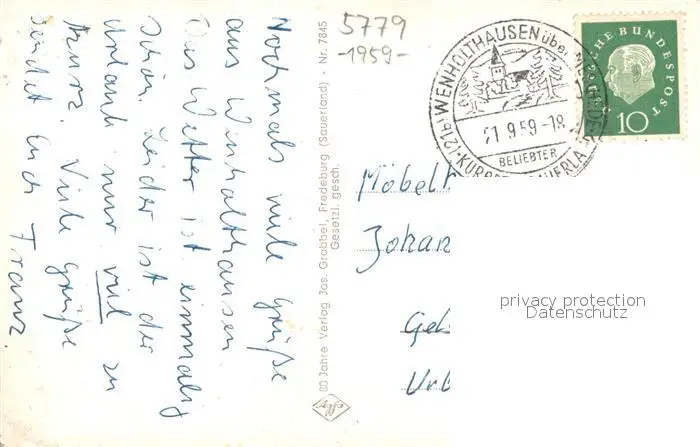 Nochmals viele Grüße
aus Wenholthausen
Das Wetter ist einmalig
schön. Leider ist der
Urlaub nur viel zu
kurz. Viele Grüße
sendet Euch Franz
80 Jahre Verlag Jos. Grobbel, Fredeburg (Sauerland) - Nr. 7845
Gesetzl. gesch.
5779
-1959-
(21b) WENHOLTHAUSEN über MESCHEDE
21.9.59-18
BELIEBTER
KURORT
SAUERLA
CHE BUNDESPOST
10
Möbelh
Johan
Gel
Url
privacy protection
Datenschutz